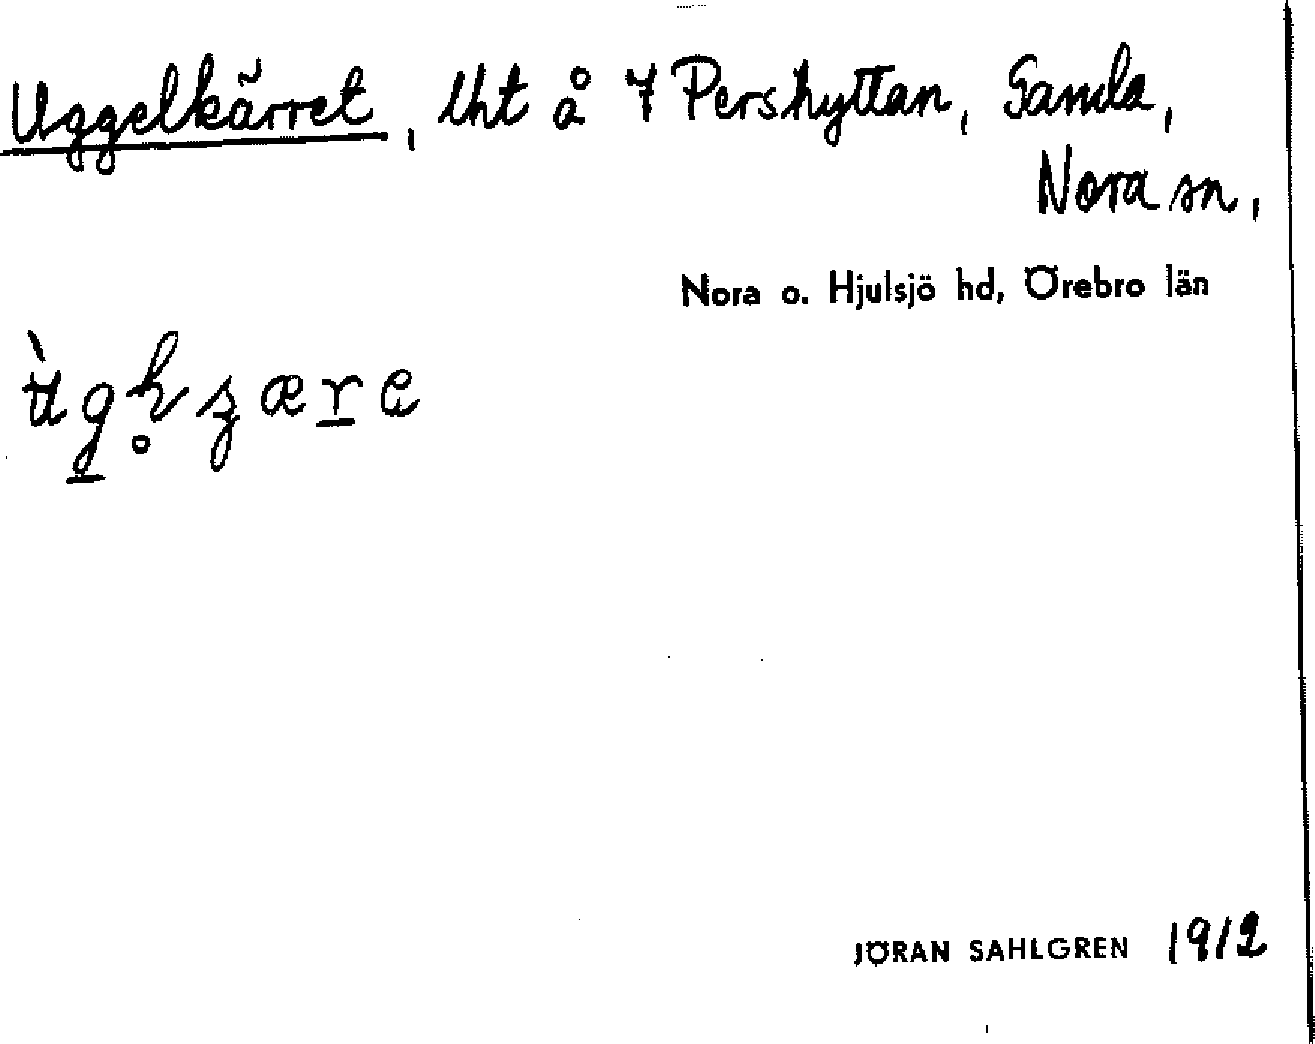 Uggelkärret, lht å 7 Pershyttan, Gamla,
Nora sn,
Nora o. Hjulsjö hd, Örebro län
JÖRAN SAHLGREN 1912